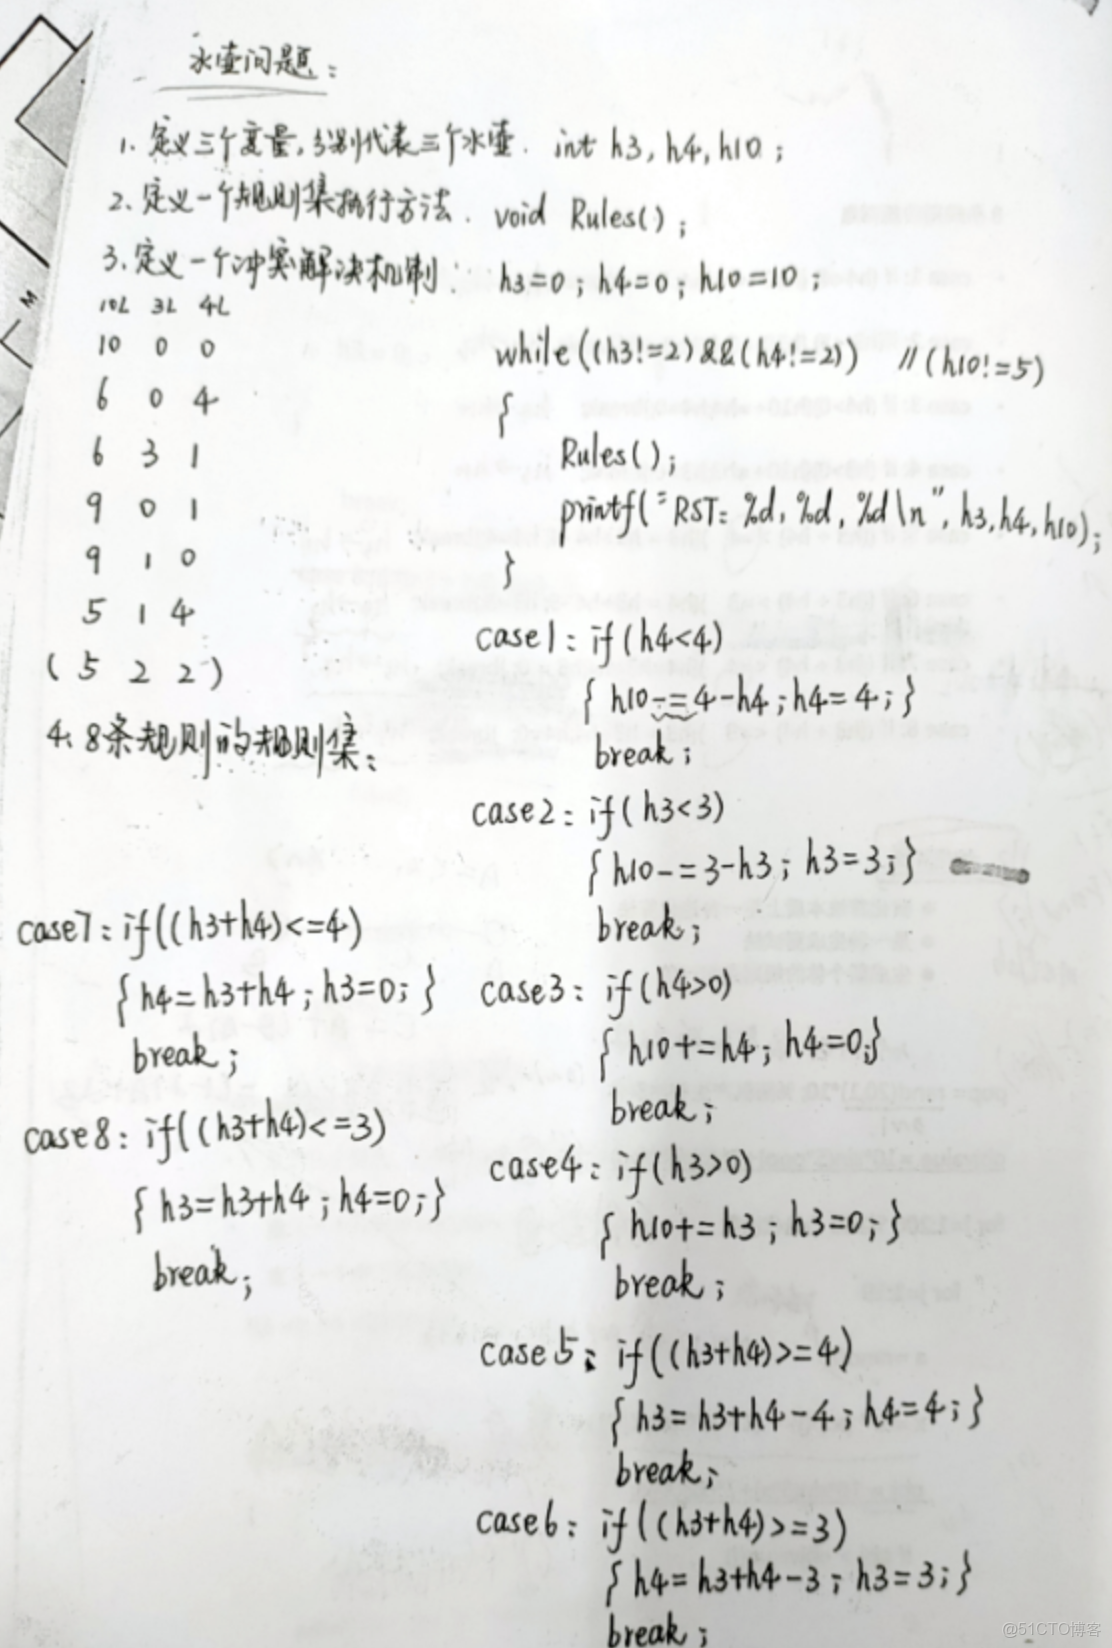 水壶问题:
1. 定义三个变量,分别代表三个水壶. int h3, h4, h10;
2. 定义一个规则集执行方法. void Rules();
3. 定义一个冲突解决机制 h3=0; h4=0; h10=10;
10L 3L 4L
10 0 0
6 0 4
6 3 1
9 0 1
9 1 0
5 1 4
(5 2 2)
while((h3!=2)&&(h4!=2)) //(h10!=5)
{
Rules();
printf("RST: %d, %d, %d\n", h3, h4, h10);
}
4. 8条规则的规则集:
case1: if(h4<4)
{ h10-=4-h4; h4=4; }
break;
case2: if(h3<3)
{ h10-=3-h3; h3=3; }
break;
case3: if(h4>0)
{ h10+=h4; h4=0; }
break;
case4: if(h3>0)
{ h10+=h3; h3=0; }
break;
case5: if((h3+h4)>=4)
{ h3=h3+h4-4; h4=4; }
break;
case6: if((h3+h4)>=3)
{ h4=h3+h4-3; h3=3; }
break;
case7: if((h3+h4)<=4)
{ h4=h3+h4; h3=0; }
break;
case8: if((h3+h4)<=3)
{ h3=h3+h4; h4=0; }
break;
M
@51CTO博客